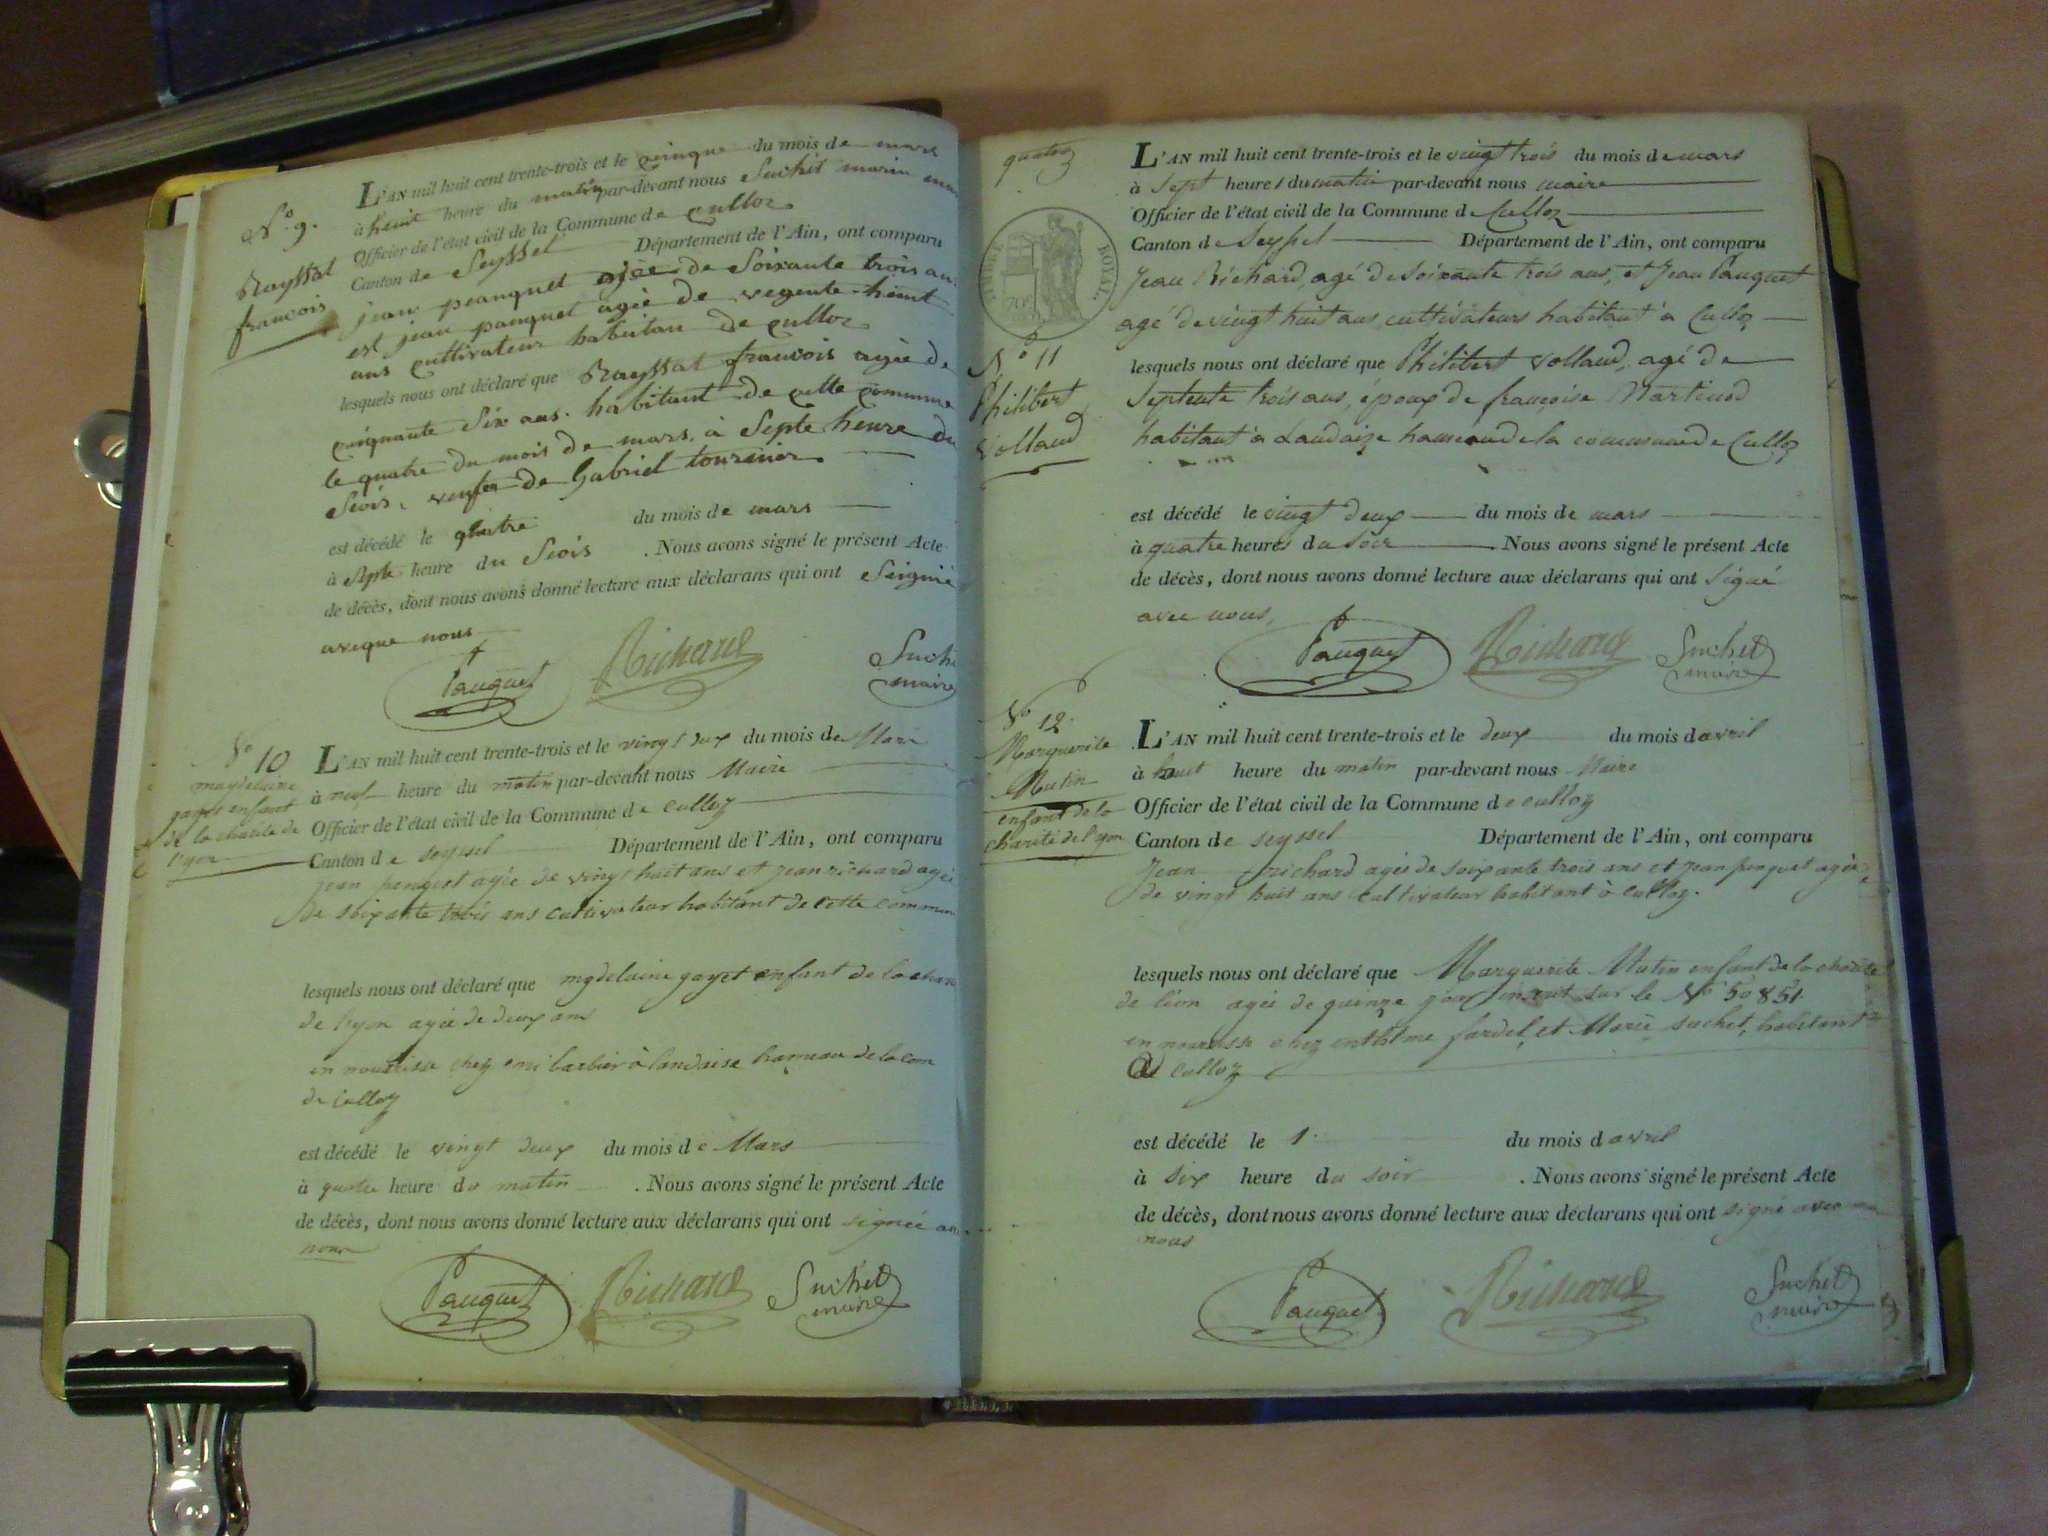 L'AN mil huit cent trente-trois et le cinque du mois de mars
à heuit heure du matin par-devant nous Suchet marin
Officier de l'état civil de la Commune de culloz
Canton de Seyssel Département de l'Ain, ont comparu
N.º 9.
Rayssat
francois
jean agée de Soixante trois ans
est jean panquet agée de vegente-heuit
ans cultivateur habitan de culloz
lesquels nous ont déclaré que Rayssat francois agée de
cinquante Six ans. habitant de cette commune
le quatre du mois de mars, à Septe heure du
Seois, de Gabriel tournier
est décédé le quatre du mois de mars
à Septe heure du Seois . Nous avons signé le présent Acte
de décès, dont nous avons donné lecture aux déclarans qui ont Seignié
aveque nous
Pauquet Richard Suchet
maire
Nº 10
magdelaine
gayet enfant
de la charité de
lyon
L'AN mil huit cent trente-trois et le vingt deux du mois de Mars
à neuf heure du matin par-devant nous Maire
Officier de l'état civil de la Commune de culloz
Canton de seyssel Département de l'Ain, ont comparu
jean penquet agée de vingt huit ans et jean richard agée
de soixante trois ans cultivateur habitant de cette commun
lesquels nous ont déclaré que mgdelaine gayet enfant de la
de lyon agée de deux ans
en nourisse chez barbier à landaise hameau de la com
de culloz
est décédé le vingt deux du mois de Mars
à quatre heure du matin . Nous avons signé le présent Acte
de décès, dont nous avons donné lecture aux déclarans qui ont signée
nous
Pauquet Richard Suchet
maire
L'AN mil huit cent trente-trois et le vingt trois du mois de mars
à sept heures du matin par-devant nous maire
Officier de l'état civil de la Commune de Culloz
Canton de Seyssel Département de l'Ain, ont comparu
TIMBRE ROYAL.
Jean Richard, agé de soixante trois ans, et Jean Pauquet
agé de vingt huit ans, cultivateurs habitant à Culloz
Nº 11
Philibert
Vollaud
lesquels nous ont déclaré que Philibert Vollaud, agé de
septente trois ans, époux de françoise Martinod
habitant à Landaize hameau de la commune de Culloz
est décédé le vingt deux du mois de mars
à quatre heures du soir . Nous avons signé le présent Acte
de décès, dont nous avons donné lecture aux déclarans qui ont signé
avec nous,
Pauquet Richard Suchet
maire
Nº 12
Marguerite
Mutin
enfant de la
charité de lyon
L'AN mil huit cent trente-trois et le deux du mois d avril
à huit heure du matin par-devant nous Maire
Officier de l'état civil de la Commune de culloz
Canton de seyssel Département de l'Ain, ont comparu
Jean richard agée de soixante trois ans et jean penquet agée
de vingt huit ans cultivateur habitant à culloz.
lesquels nous ont déclaré que Marguerite Mutin enfant de la charité
de lion agée de quinze jour sur le Nº 50851
en nourisse chez fardel, et Marie suchet, habitant
culloz
est décédé le 1 du mois d avril
à six heure du soir . Nous avons signé le présent Acte
de décès, dont nous avons donné lecture aux déclarans qui ont signé avec
nous
Pauquet Richard Suchet
maire